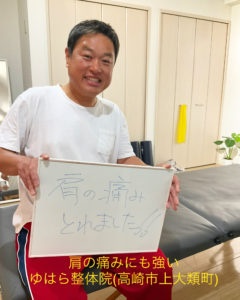 肩の痛み
とれました!!
肩の痛みにも強い
ゆはら整体院(高崎市上大類町)